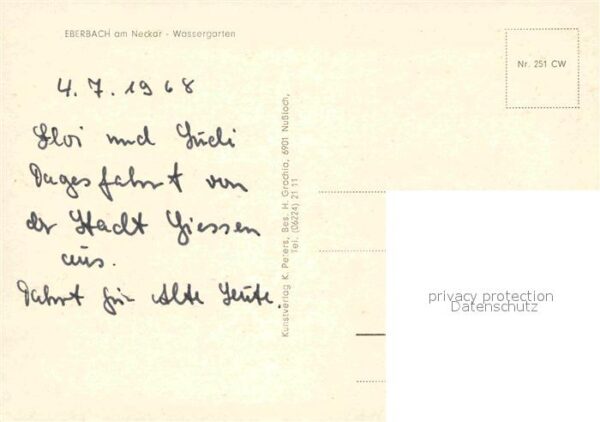 EBERBACH am Neckar - Wassergarten
Nr. 251 CW
4.7.1968
und
Tagesfahrt von
der Stadt Giessen
aus.
Fahrt für Alte Leute.
Kunstverlag K. Peters, Bes. H. Grochla, 6901 Nußloch,
Tel. (06224) 21 11
privacy protection
Datenschutz